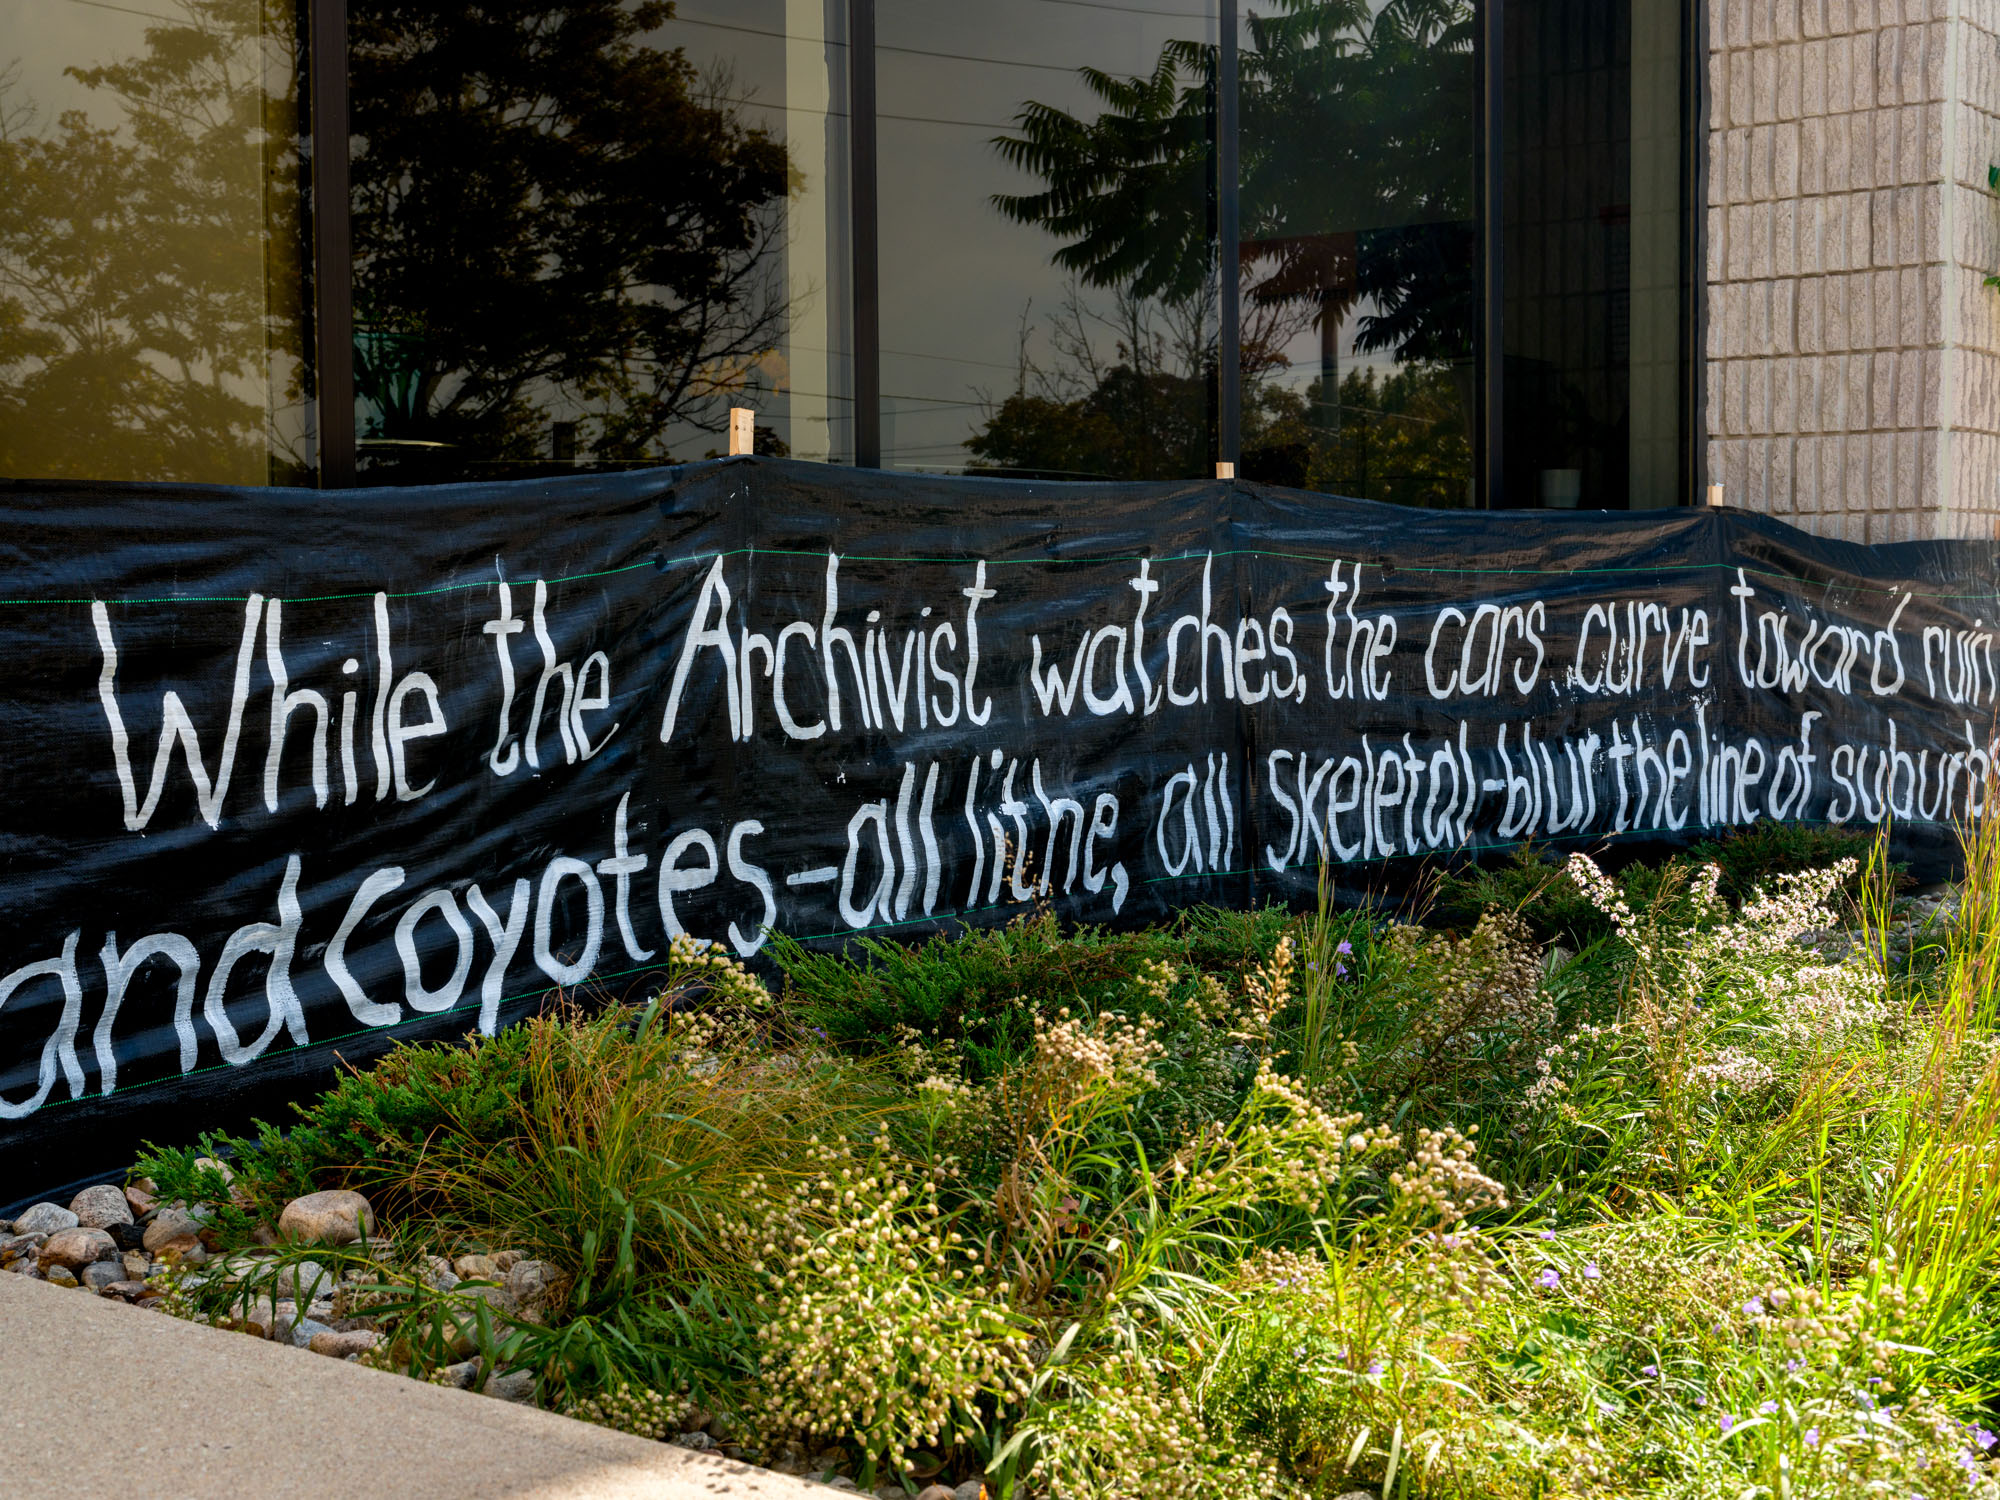 While the Archivist watches, the cars curve toward ruin
and coyotes-all lithe, all skeletal-blur the line of suburb